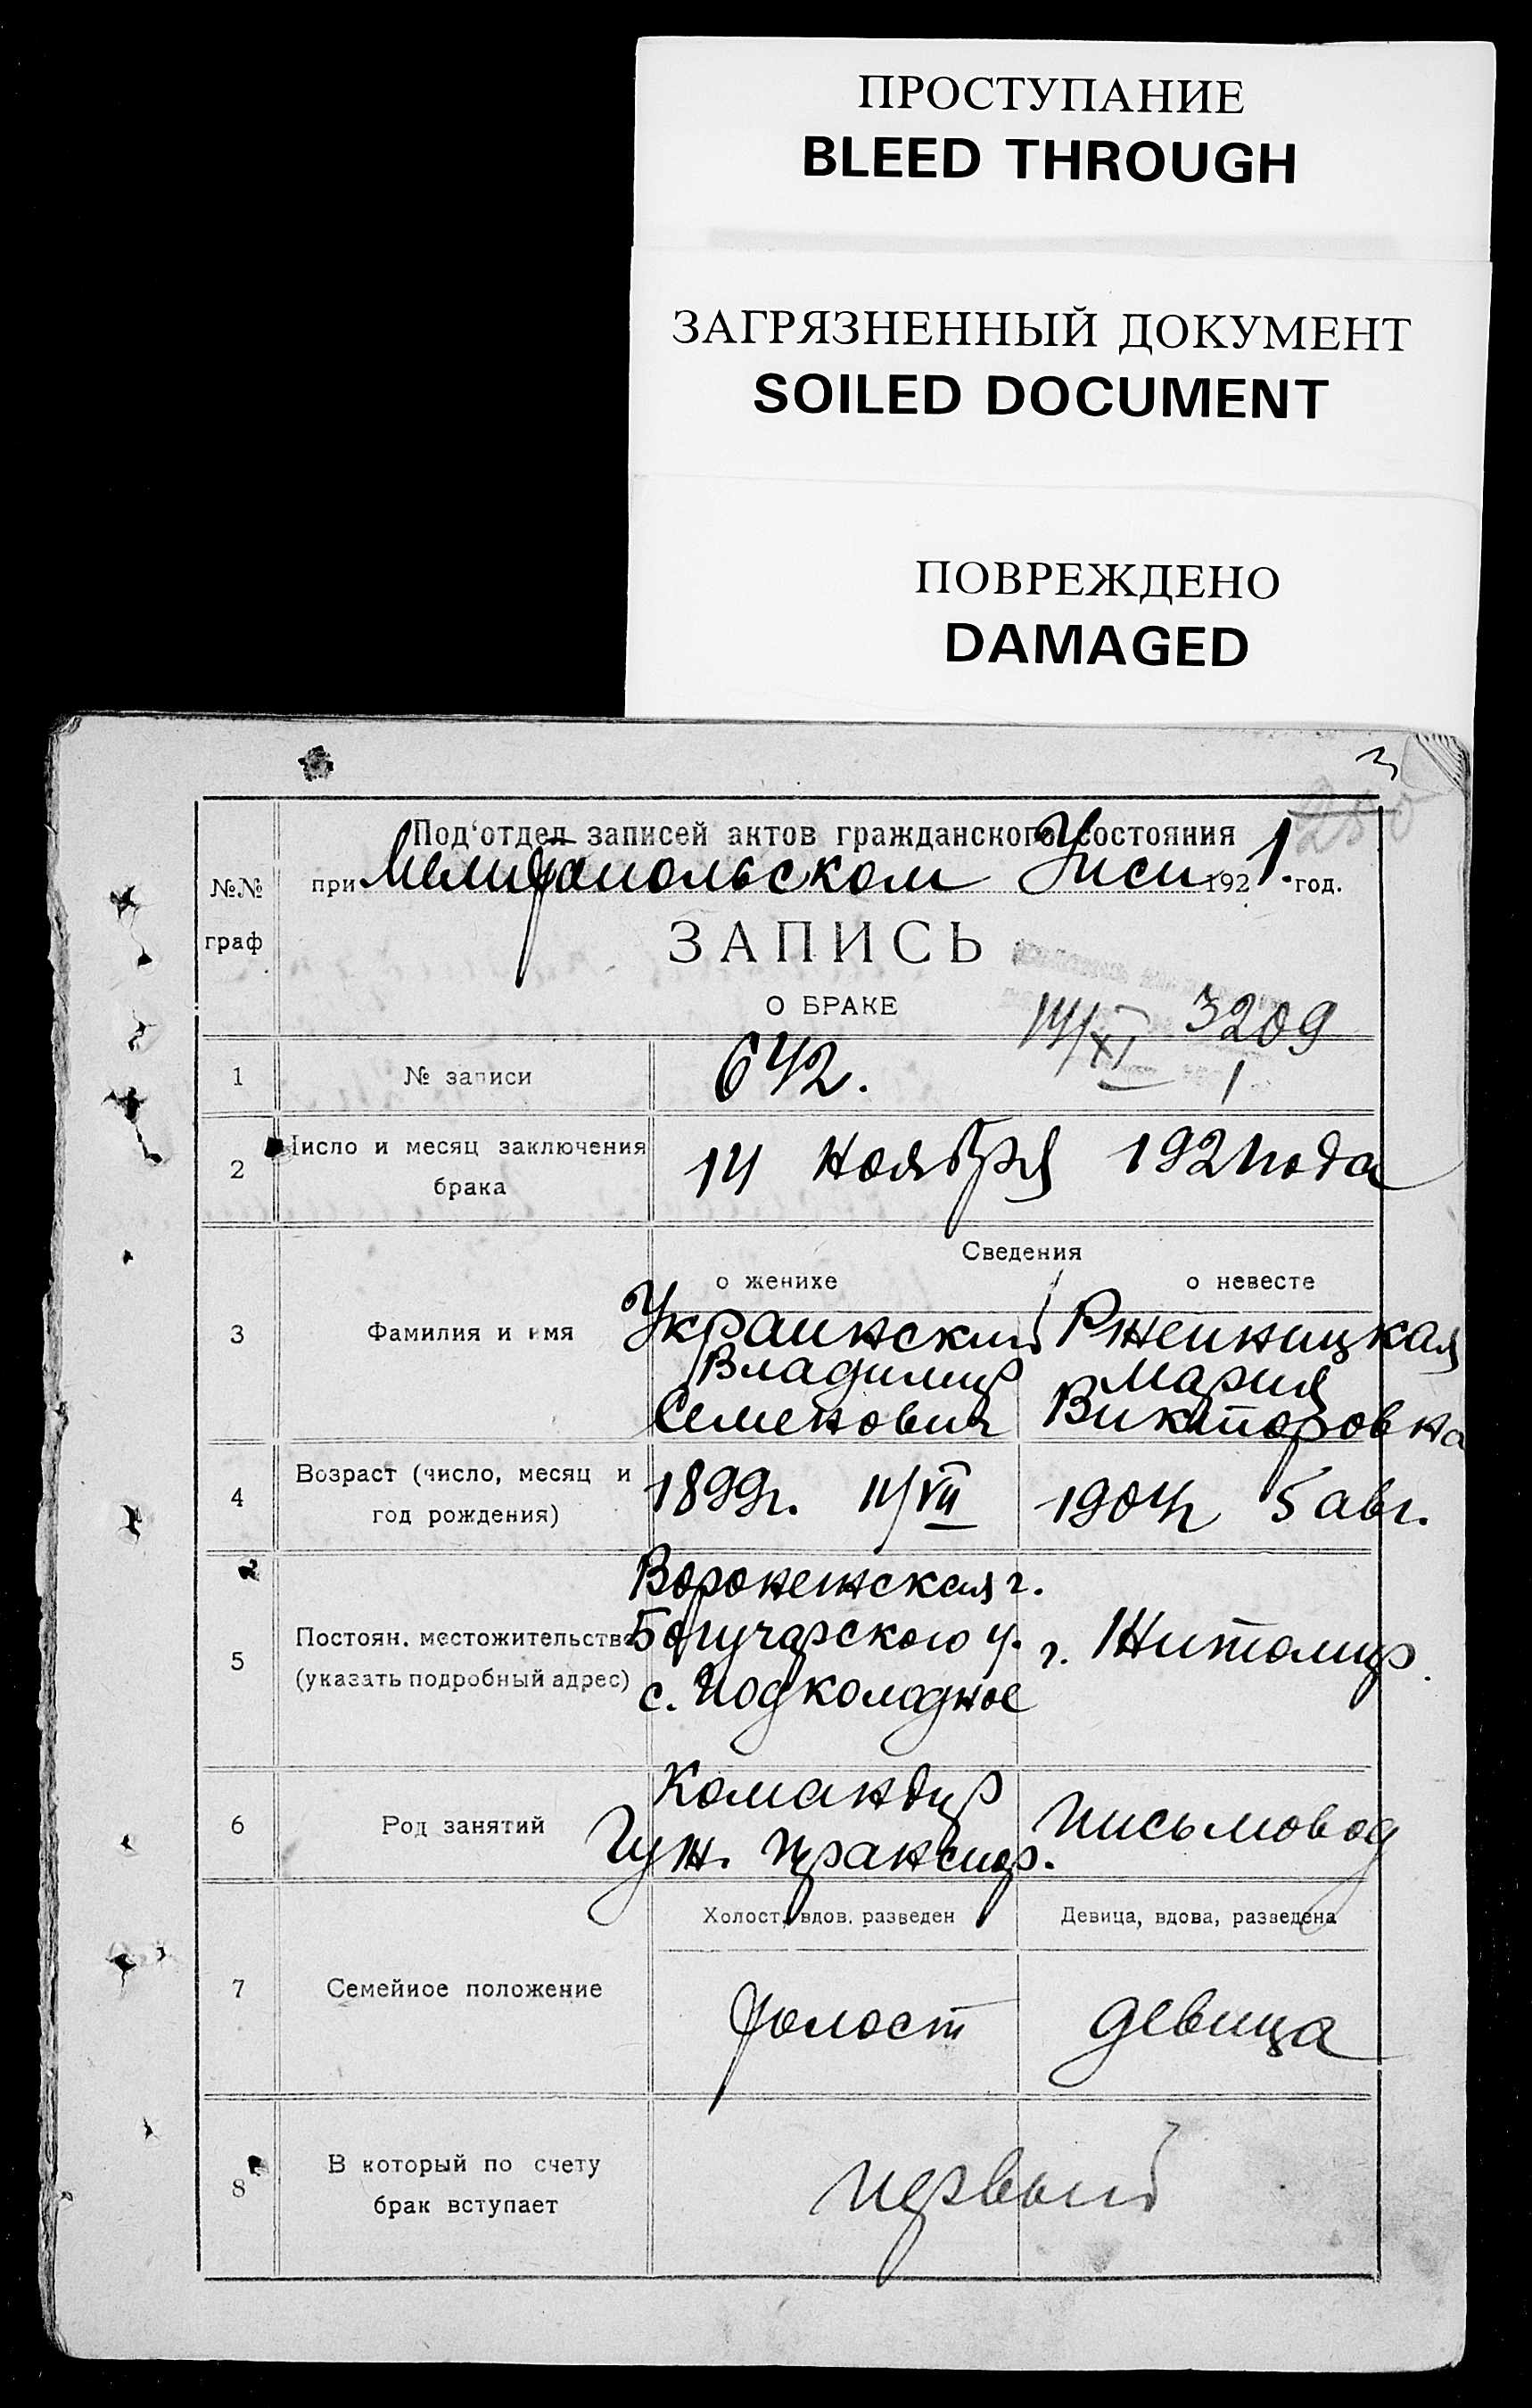 ПРОСТУПАНИЕ
BLEED THROUGH
ЗАГРЯЗНЕННЫЙ ДОКУМЕНТ
SOILED DOCUMENT
ПОВРЕЖДЕНО
DAMAGED
3
250
Под'отдел записей актов гражданского состояния
№№ граф
при Мелитопольском Уиси 1921 год.
ЗАПИСЬ
О БРАКЕ
14/XI 3209
1
1 № записи 642.
2 Число и месяц заключения брака 14 ноября 1921 года
Сведения
о женихе о невесте
3 Фамилия и имя Украинский Ржепницкая
Владимир Мария
Семенович Викторовна
4 Возраст (число, месяц и год рождения) 1899г. 14/VII 1904г 5 авг.
Воронежская г.
5 Постоян. местожительств Богучарского у. г. Житомир.
(указать подробный адрес) с. Подколодное
6 Род занятий Командир письмовод
Гуж. транспор.
Холост, вдов. разведен Девица, вдова, разведена
7 Семейное положение холост девица
8 В который по счету
брак вступает первый